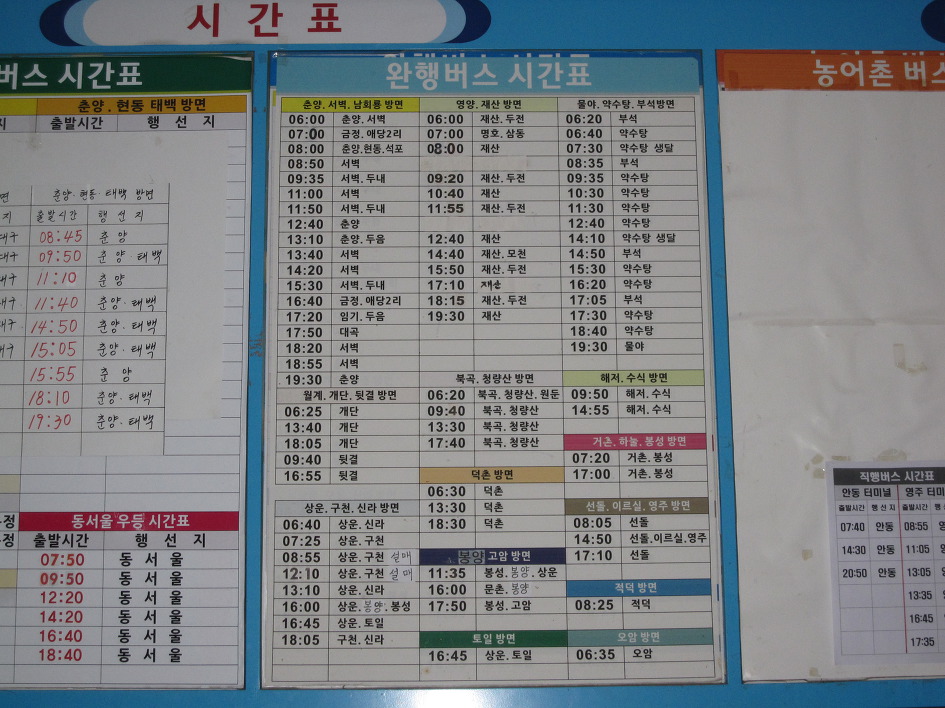 시 간 표
버스 시간표
춘양. 현동 태백 방면
지 출발시간 행 선 지
춘양. 현동. 태백 방면
지 출발시간 행 선 지
대구 08:45 춘 양
대구 09:50 춘양. 태백
대구 11:10 춘 양
11:40 춘양. 태백
대구 14:50 춘양. 태백
대구 15:05 춘양. 태백
15:55 춘 양
18:10 춘양. 태백
19:30 춘양. 태백
동서울 우등 시간표
출발시간 행 선 지
07:50 동 서 울
09:50 동 서 울
12:20 동 서 울
14:20 동 서 울
16:40 동 서 울
18:40 동 서 울
완행버스 시간표
춘양. 서벽. 남회룡 방면
06:00 춘양. 서벽
07:00 금정. 애당2리
08:00 춘양.현동.석포
08:50 서벽
09:35 서벽. 두내
11:00 서벽
11:50 서벽. 두내
12:40 춘양
13:10 춘양. 두음
13:40 서벽
14:20 서벽
15:30 서벽. 두내
16:40 금정. 애당2리
17:20 임기. 두음
17:50 대곡
18:20 서벽
18:55 서벽
19:30 춘양
월계. 개단. 뒷결 방면
06:25 개단
13:40 개단
18:05 개단
09:40 뒷결
16:55 뒷결
상운. 구천. 신라 방면
06:40 상운. 신라
07:25 상운. 구천
08:55 상운. 구천 설매
12:10 상운. 구천 설매
13:10 상운. 신라
16:00 상운. 봉양. 봉성
16:45 상운. 토일
18:05 구천. 신라
영양. 재산 방면
06:00 재산. 두전
07:00 명호. 삼동
08:00 재산
09:20 재산. 두전
10:40 재산
11:55 재산. 두전
12:40 재산
14:40 재산. 모천
15:50 재산. 두전
17:10 재산
18:15 재산. 두전
19:30 재산
북곡. 청량산 방면
06:20 북곡. 청량산. 원둔
09:40 북곡. 청량산
13:30 북곡. 청량산
17:40 북곡. 청량산
덕촌 방면
06:30 덕촌
13:30 덕촌
18:30 덕촌
봉양 고암 방면
11:35 봉성. 봉양. 상운
16:00 문촌. 봉양
17:50 봉성. 고암
토일 방면
16:45 상운. 토일
물야. 약수탕. 부석방면
06:20 부석
06:40 약수탕
07:30 약수탕 생달
08:35 부석
09:35 약수탕
10:30 약수탕
11:30 약수탕
12:40 약수탕
14:10 약수탕 생달
14:50 부석
15:30 약수탕
16:20 약수탕
17:05 부석
17:30 약수탕
18:40 약수탕
19:30 물야
해저. 수식 방면
09:50 해저. 수식
14:55 해저. 수식
거촌. 하눌. 봉성 방면
07:20 거촌. 봉성
17:00 거촌. 봉성
선돌. 이르실. 영주 방면
08:05 선돌
14:50 선돌.이르실.영주
17:10 선돌
적덕 방면
08:25 적덕
오암 방면
06:35 오암
농어촌 버스
직행버스 시간표
안동 터미널 영주 터미
출발시간 행 선 지 출발시간 행
07:40 안동 08:55
14:30 안동 11:05
20:50 안동 13:05
13:35
16:45
17:35